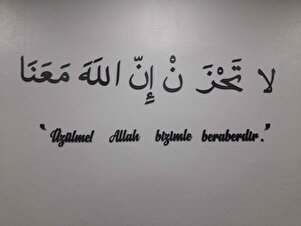 لا تَحْزَ نْ إِنَّ اللَّهَ مَعَنَا
"Üzülme! Allah bizimle beraberdir."